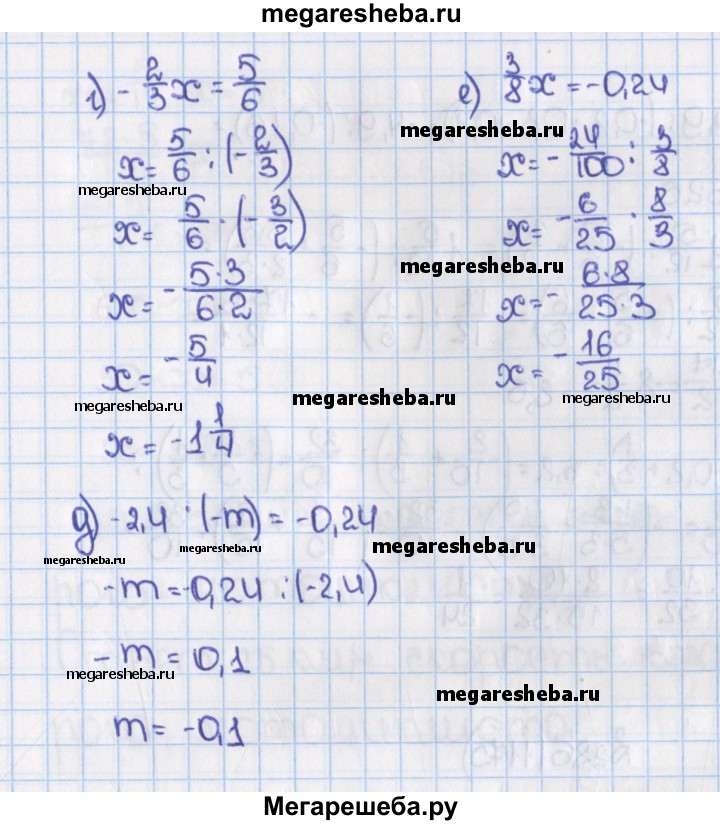 megaresheba.ru
г) -2/3 x = 5/6
x = 5/6 : (-2/3)
megaresheba.ru
x = 5/6 · (-3/2)
x = - 5·3/6·2
x = - 5/4
megaresheba.ru
x = -1 1/4
е) 3/8 x = -0,24
megaresheba.ru
x = - 24/100 : 3/8
x = - 6/25 · 8/3
megaresheba.ru
x = - 6·8/25·3
x = - 16/25
megaresheba.ru
megaresheba.ru
д) -2,4 · (-m) = -0,24
megaresheba.ru
megaresheba.ru
megaresheba.ru
-m = -0,24 : (-2,4)
-m = 0,1
megaresheba.ru
megaresheba.ru
m = -0,1
Мегарешеба.ру